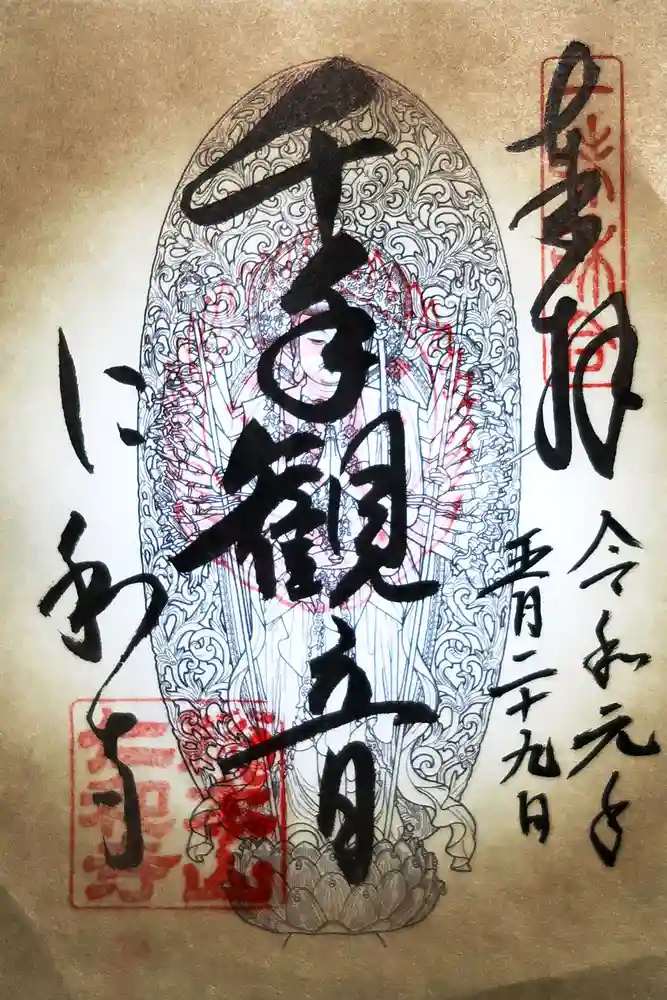 奉拝
令和元年
五月二十九日
千手観音
仁和寺
仁和寺